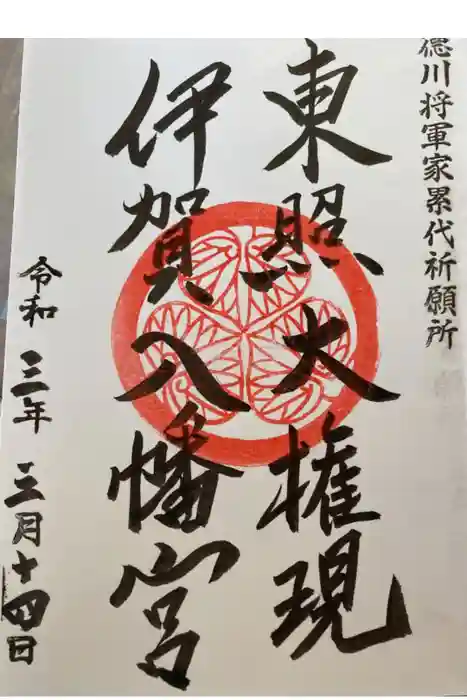 德川将軍家累代祈願所
東照大権現
伊賀八幡宮
令和三年三月十四日